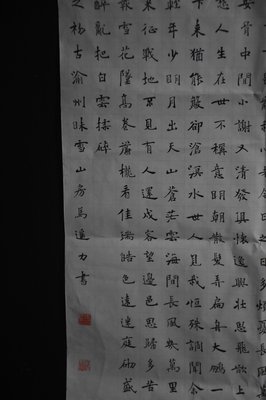 安骨中間小謝又清發俱懷逸興壯思飛欲上
人生在世不稱意明朝散髮弄扁舟大鵬一
下來猶能簸卻滄溟水世人見我恒殊調聞余
輕年少明月出天山蒼茫雲海間長風幾萬里
來征戰地不見有人還戍客望邊色思歸多苦
雪花墜高卷簾櫳看佳瑞皓色遠迷庭砌盛
醉亂把白雲揉碎
之楊古渝州昧雪山房馬遠力書